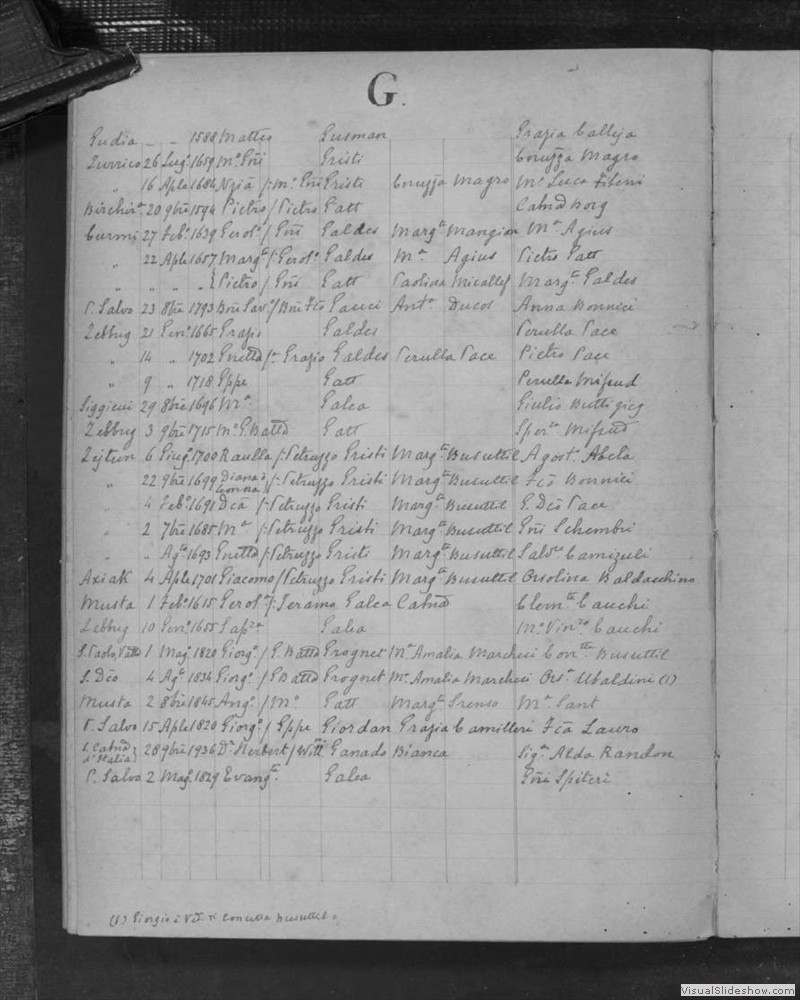 G.
Gudia _ _ 1588 Matteo Gusman Grazia Calleja
Zurrico 26 Lug.º 1659 M.º Gñi Gristi Coruzza Magro
" 16 Aple 1684 Nzia /: M.º Gñi Gristi Coruzza Magro M.º Luca
Birchir.ª 20 9bre 1594 Pietro / Pietro Gatt Catnā Borg
Curmi 27 Feb.º 1639 Gerol.º / Gñi Galdes Marg.ta Mangion M.ª Agius
" 22 Aple 1657 Marg.ta /: Gerol.º Galdes M.ª Agius Pietro Gatt
" " " " { Pietro / Gñi Gatt Paolina Micallef Marg.ta Galdes
P. Salvo 23 8bre 1793 Gauci Ant.ª Ducos Anna Bonnici
Zebbug 21 Gen.º 1665 Grazio Galdes Perulla Pace
" 14 " 1702 Gnetta /: Grazio Galdes Perulla Pace Pietro Pace
" 9 " 1718 Gppe Gatt Perulla Mifsud
Siggieui 29 8bre 1696 M.ª Galea Giulio Buttigieg
Zebbug 3 9bre 1715 M.º G. Battā Gatt Sper.ª Mifsud
Zejtun 6 Giug.º 1700 Raulla /: Petruzzo Gristi Marg.ta Busuttil Agost.º Abela
" 22 9bre 1699 Diana /: Petruzzo Gristi Marg.ta Busuttil Fcō Bonnici
" 4 Feb.º 1691 Dcā /: Petruzzo Gristi Marg.ta Busuttil G. Dcō Pace
" 2 7bre 1685 M.ª /: Petruzzo Gristi Marg.ta Busuttil Gñi Schembri
" " Ag.º 1693 Gnetta /: Petruzzo Gristi Marg.ta Busuttil Salv.re Camizuli
Axiak 4 Aple 1701 Giacomo / Petruzzo Gristi Marg.ta Busuttil Orsolina Baldacchino
Musta 1 Feb.º 1615 Gerol.ª /: Galea Catnā Clem.te Cauchi
Zebbug 10 Gen.º 1655 Galea M.º Vin.zo Cauchi
S. Paolo, Vttā 1 Mag.º 1820 Giorg.º / G. Battā Grognet M.ª Amalia Marchesi Con.tta Busuttil
S. Dcō 4 Ag.º 1834 Giorg.º / G. Battā Grognet M.ª Amalia Marchesi Ors.ª Ubaldini (1)
Musta 2 8bre 1845 Ang.º / M.º Gatt Marg.ta M.ª Sant
P. Salvo 15 Aple 1820 Giorg.º / Gppe Giordan Grazia Camilleri Fcā Lauro
S. Catnā d'Italia } 28 9bre 1936 D.r Herbert / Will Ganado Bianca Sig.na Alda Randon
P. Salvo 2 Mag.º 1829 Evang.ta Galea Gñi Spiteri
(1) Giorgio è Concetta Busuttil.
VisualSlideshow.com